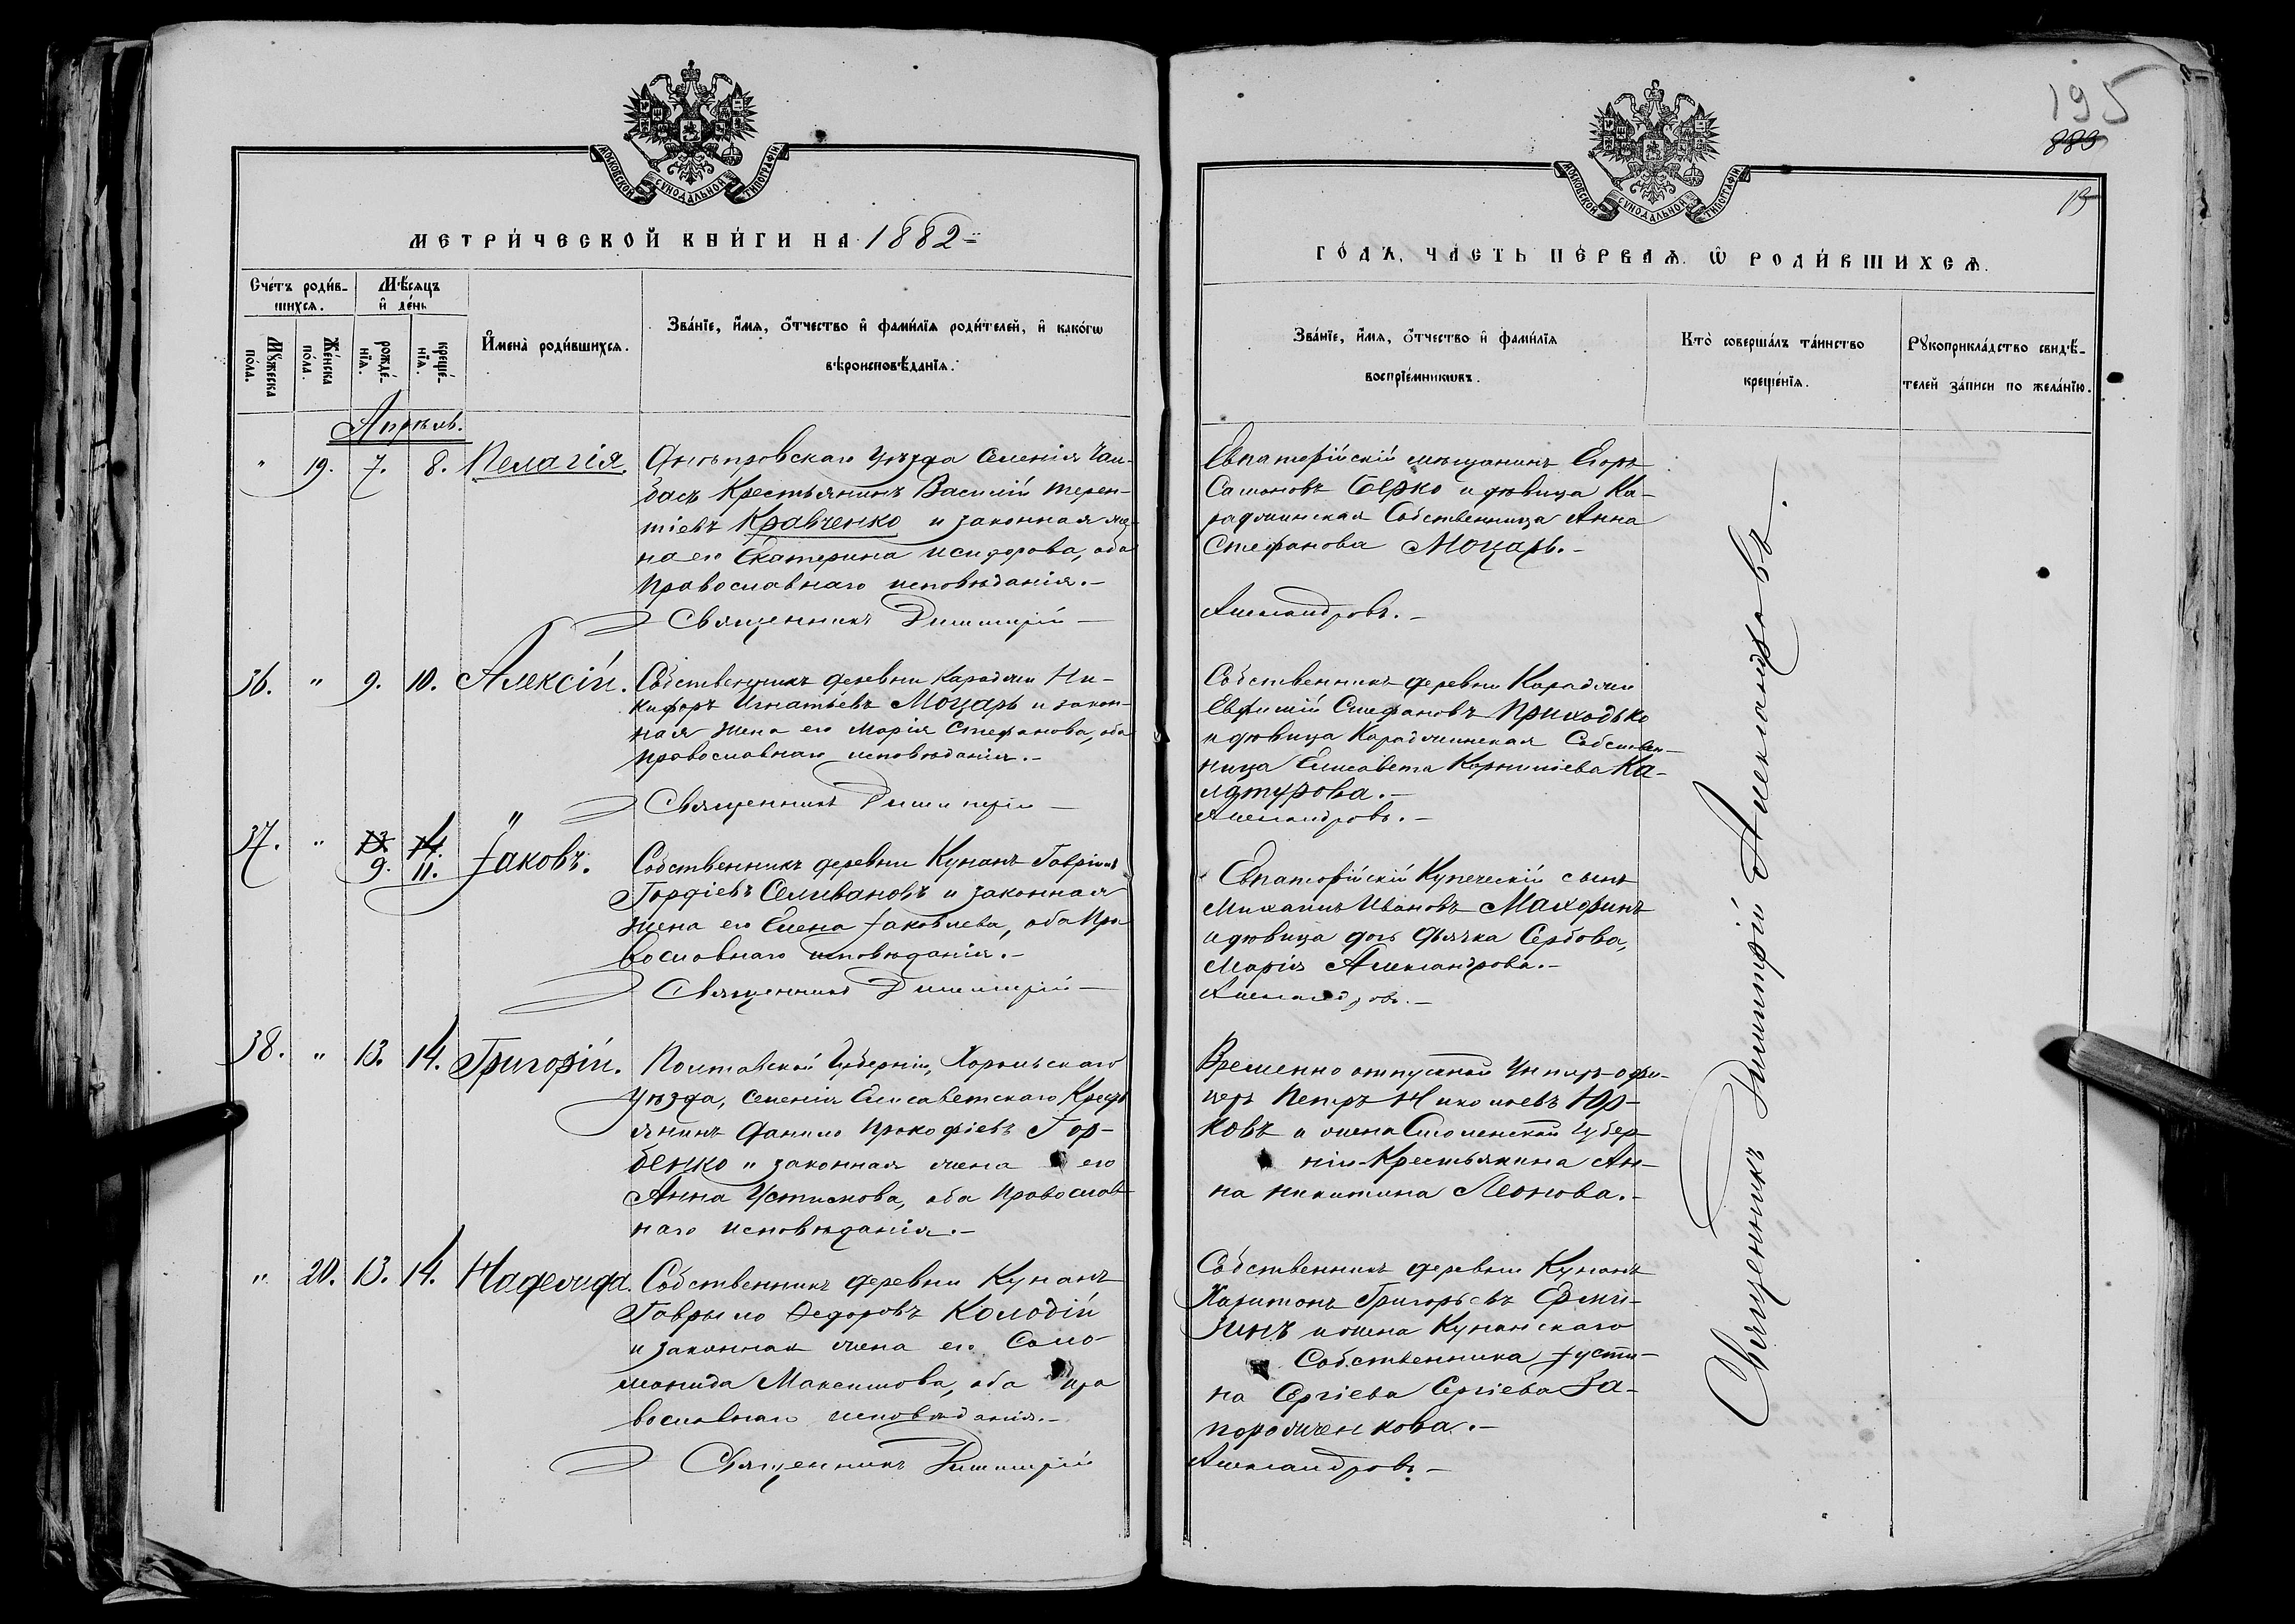 МОСКОВСКОЙ СѴНОДАЛЬНОЙ ТИПОГРАФІИ
МЕТРИ́ЧЕСКОЙ КНИ́ГИ НА 1882
Сче́тъ роди́в-
шихся.
Мѣ́сяцъ
и҆ де́нь
Мꙋ́жеска
по́ла.
Же́нска
по́ла.
рожде́-
нїѧ.
креще́-
нїѧ.
И҆мена̀ роди́вшихся.
Зва́нїе, и҆́мѧ, ѻ҆́тчество и҆ фами́лїѧ роди́телей, и҆ како́гѡ
вѣроисповѣ́данїѧ.
Апрѣль.
" 19. 7. 8. Пелагія.
Днѣпровскаго Уѣзда Селенія Чал-
басъ Крестьянинъ Василій Терен-
тіевъ Кравченко и законная же-
на его Екатерина Исидорова, оба
Православнаго исповѣданія.-
Священникъ Димитрій
36. " 9. 10. Алексій.
Собственникъ деревни Караджи Ни-
кифоръ Игнатьевъ Моцарь и закон-
ная жена его Марія Стефанова, оба
православнаго исповѣданія.-
Священникъ Димитрій
37. " 13 14. "
9. 11. Іаковъ.
Собственникъ деревни Кунанъ Гавріилъ
Гордіевъ Селивановъ и законная
жена его Елена Іаковлева, оба Пра
вославнаго исповѣданія.-
Священникъ Димитрій
38. " 13. 14. Григорій.
Полтавской Губерніи, Хорольскаго
Уѣзда, селенія Елисаветскаго Крест
янинъ Данило Прокофіевъ Гор-
бенко и законная жена его
Анна Устинова, оба Православ
наго исповѣданія.-
" 20. 13. 14. Надежда.
Собственникъ деревни Кунанъ
Гаврыло Ѳедоровъ Колодій
и законная жена его Соло
монида Максимова, оба пра
вославнаго исповѣданія.-
Священникъ Димитрій
195
883
15
МОСКОВСКОЙ СѴНОДАЛЬНОЙ ТИПОГРАФІИ
ГО́ДЪ, ЧА́СТЬ ПЕ́РВАѦ. Ѽ РОДИ́ВШИХСѦ.
Зва́нїе, и҆́мѧ, ѻ҆́тчество и҆ фами́лїѧ
воспрїе́мникѡвъ.
Кто̀ соверша́лъ та́инство
креще́нїѧ.
Рꙋкоприкла́дство свидѣ́-
телей за́писи по жела́нїю.
Евпаторійскій мѣщанинъ Егоръ
Самоновъ Берко и дѣвица Ка-
раджинская Собственница Анна
Стефанова Моцарь.-
Александровъ.-
Собственникъ деревни Караджи
Евфимій Стефановъ Приходько
и дѣвица Караджинская Собствен-
ница Елисавета Корниліева Ка-
Александровъ.-
Евпаторійскій Купеческій сынъ
Михаилъ Ивановъ Махоринъ
и дѣвица дочь Дьячка Сербова,
Марія Александрова.-
Александровъ.-
Временно отпускной Унтеръ-офи-
церъ Петръ Николаевъ Юр-
ковъ и жена Смоленской Губер
ніи Крестьянина Ан-
на Никитина Леонова.-
Собственникъ деревни Кунанъ
Харитонъ Григорьевъ
и жена Кунанскаго
Собственника Іусти-
на Сергіева Сергіева За-
порожченкова.-
Александровъ-
Священникъ Димитрій Александровъ.